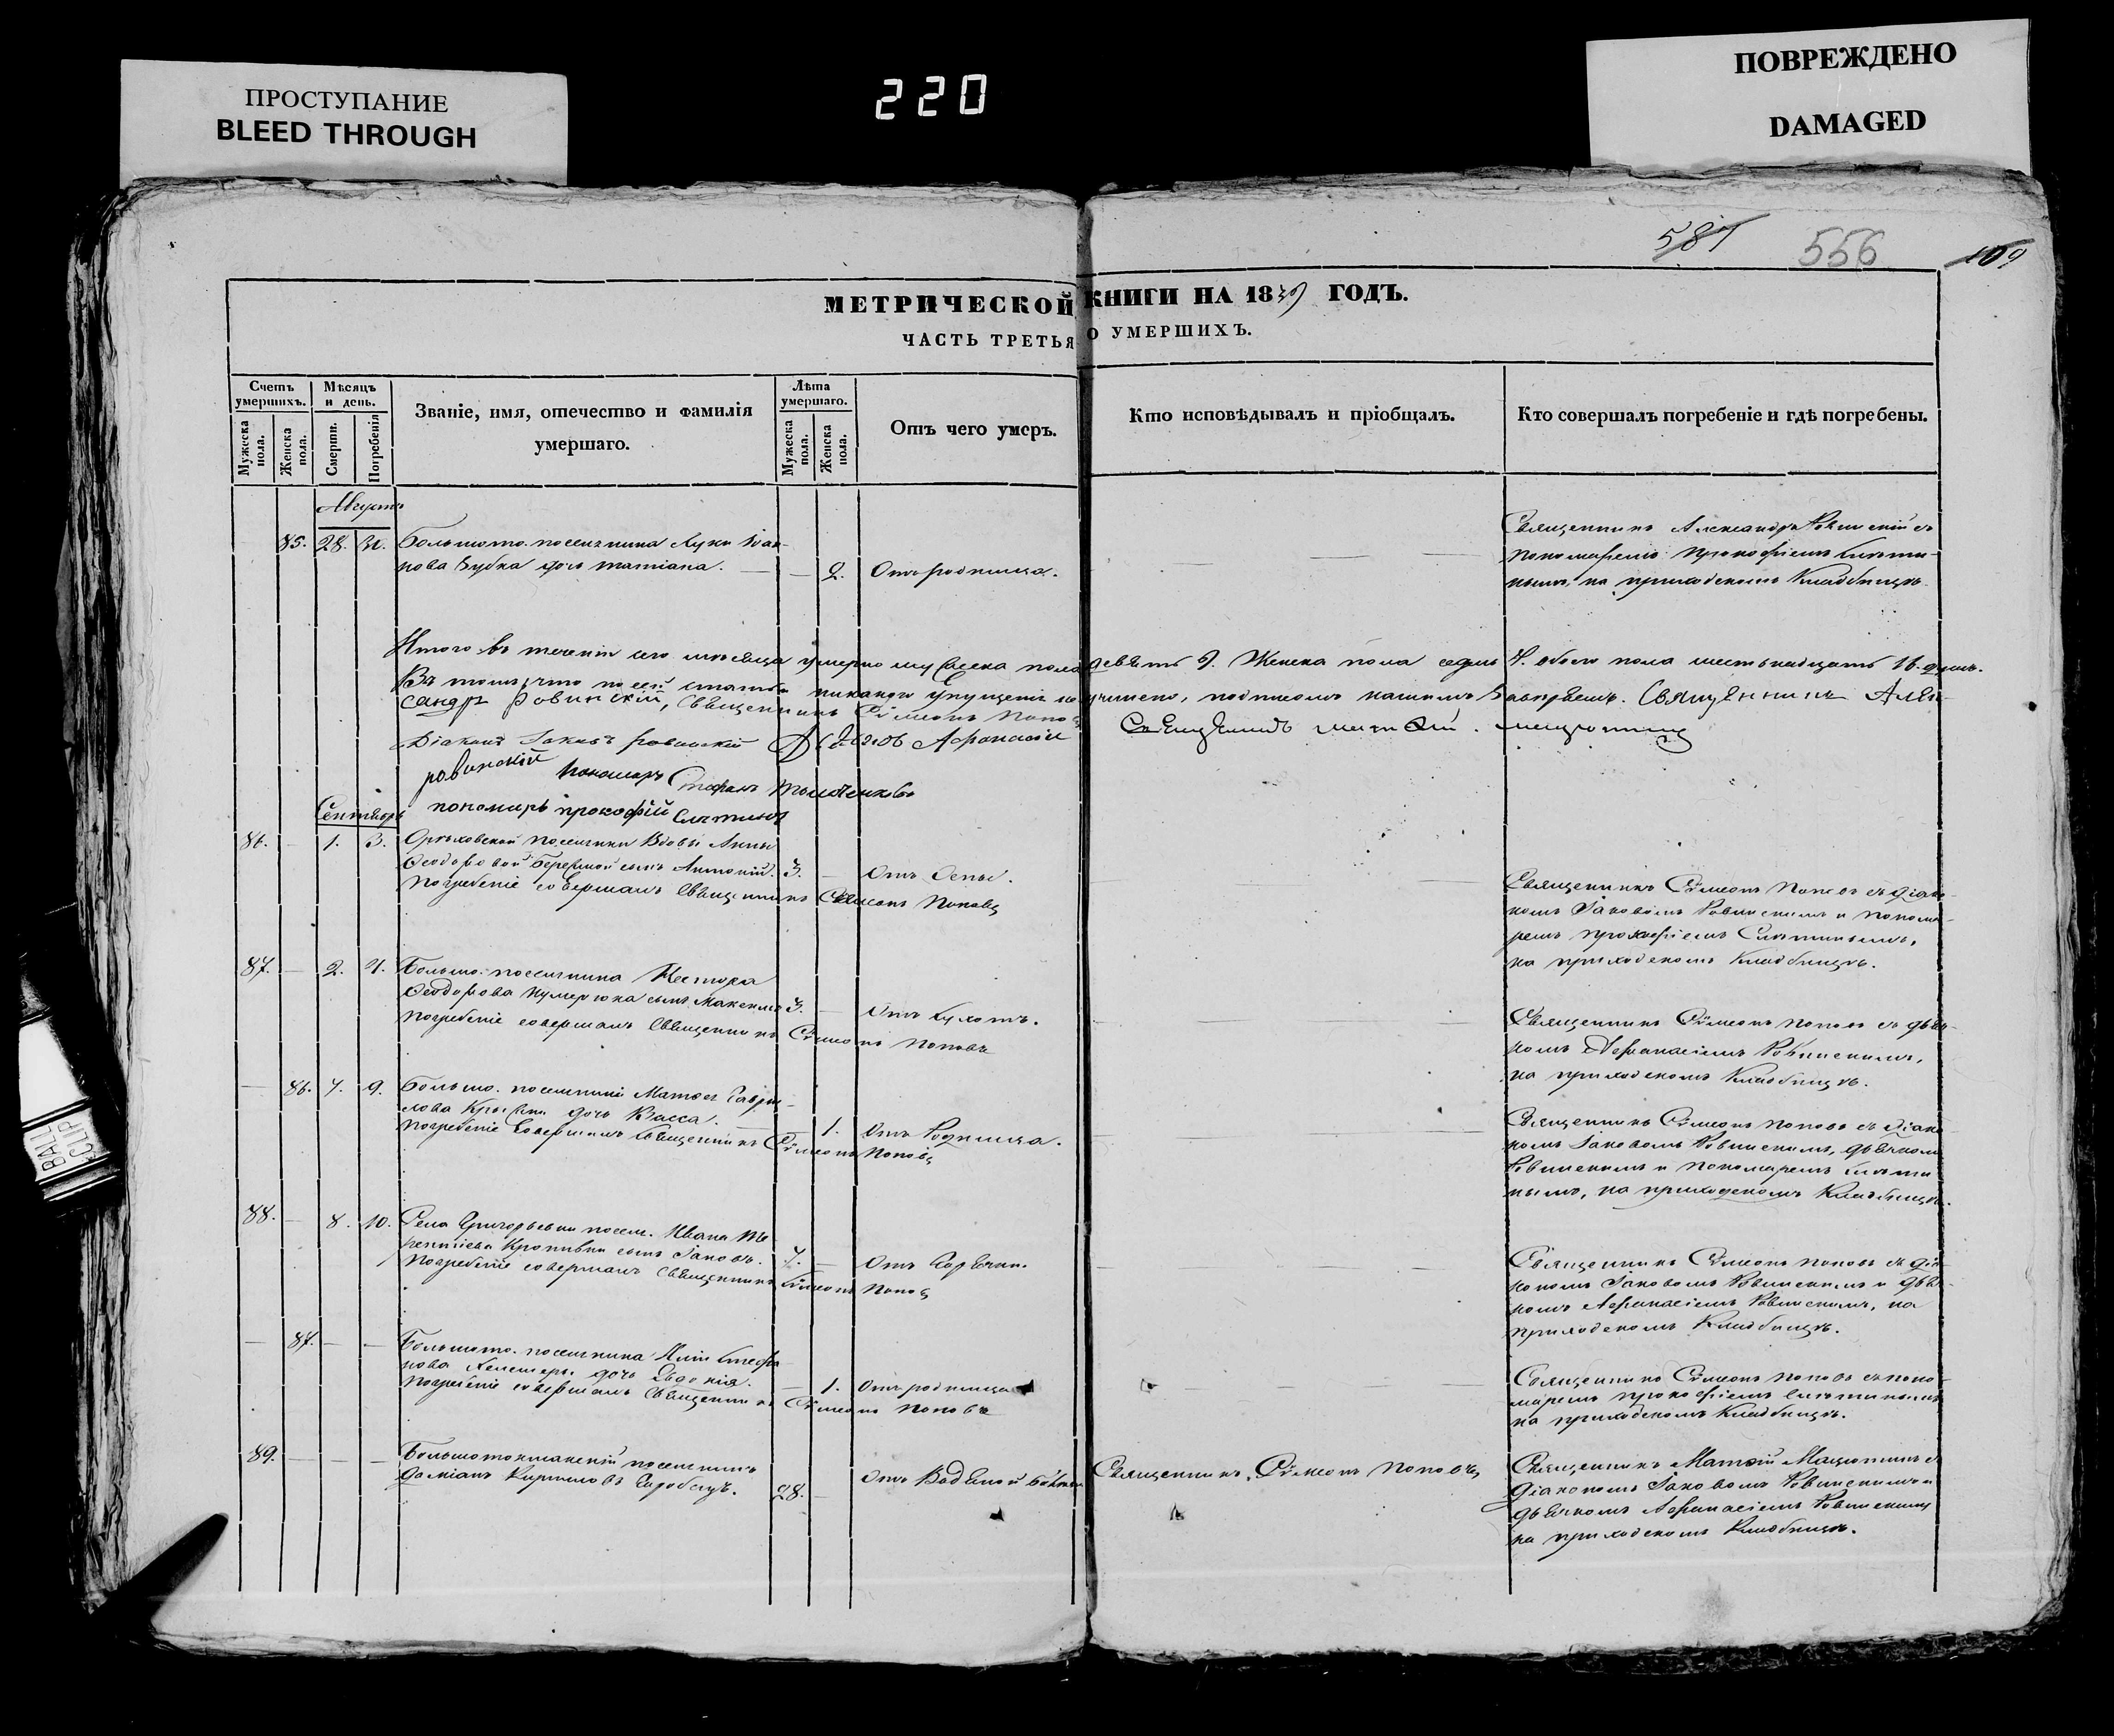 ПРОСТУПАНИЕ
BLEED THROUGH
220
ПОВРЕЖДЕНО
DAMAGED
581
556
109
МЕТРИЧЕСКОЙ КНИГИ НА 1839 ГОДЪ.
ЧАСТЬ ТРЕТЬЯ О УМЕРШИХЪ.
Счетъ умершихъ.
Мужеска пола.
Женска пола.
Мѣсяцъ и день.
Смерти.
Погребенія
Званіе, имя, отечество и фамилія
умершаго.
Лѣта умершаго.
Мужеска пола.
Женска пола.
Отъ чего умеръ.
Кто исповѣдывалъ и пріобщалъ.
Кто совершалъ погребеніе и гдѣ погребены.
Августъ
85. 28.
Большото. поселянина Луки Іоан-
нова Зубка дочь Татіана.
2. Отъ родимца.
Священникъ Александръ Ровинскій съ
пономаремъ Прокофіемъ Слюти-
нымъ, на приходскомъ Кладбищѣ.
Итого въ теченіи сего мѣсяца умерло мужеска пола девять 9. Женска пола седмь 7. обоего пола шестьнадцать 16. душъ.
Въ томъ, что по сей статьѣ никакого упущенія не учинено, подписомъ нашимъ Священникъ Алек-
сандръ Ровинскій, Священникъ Сѵмеонъ Поповъ
Діаконъ Іаковъ Ровинскій Афанасій
Ровинскій Пономарь Стефанъ
Пономарь Прокофій Слютинъ
Сентябрь
86. 1. 3.
Орѣховской поселянки Вдовы Анны
Ѳеодоровой сынъ Антоній. 3. Отъ Оспы.
Погребеніе совершалъ Священникъ Сѵмеонъ Поповъ
Священникъ Сѵмеонъ Поповъ съ діако-
номъ Іаковомъ Ровинскимъ и понома-
ремъ Прокофіемъ Слютинымъ,
на приходскомъ Кладбищѣ.
87. 2. 4.
Большо. поселянина Нестора
Ѳеодорова сынъ Максимъ 3. Отъ Сухотъ.
Погребеніе совершалъ Священникъ Сѵмеонъ Поповъ
Священникъ Сѵмеонъ Поповъ съ дьяч-
комъ Афанасіемъ Ровинскимъ,
на приходскомъ Кладбищѣ.
86. 7. 9.
Большо. поселянина Матѳея Гаври-
лова дочь Васса. 1. Отъ Родимца.
Погребеніе совершалъ Священникъ Сѵмеонъ Поповъ
Священникъ Сѵмеонъ Поповъ съ діако-
номъ Іаковомъ Ровинскимъ, дьячкомъ
Ровинскимъ и Пономаремъ Слюти-
нымъ, на приходскомъ Кладбищѣ.
88. 8. 10.
Села Григорьевки посел. Ивана Те-
рентіева Кропивки сынъ Іаковъ. 7. Отъ Горячки.
Погребеніе совершалъ Священникъ Сѵмеонъ Поповъ
Священникъ Сѵмеонъ Поповъ съ діа-
кономъ Іаковомъ Ровинскимъ и дьяч-
комъ Афанасіемъ Ровинскимъ, на
приходскомъ Кладбищѣ.
87.
Большото. поселянина Иліи Стефа-
нова дочь Евдокія. 1. Отъ родимца
Погребеніе совершалъ Священникъ Сѵмеонъ Поповъ
Священникъ Сѵмеонъ Поповъ съ поно-
маремъ Прокофіемъ Слютинымъ
на приходскомъ Кладбищѣ.
89.
Большотокмакскій поселянинъ
Даміанъ Кирилловъ 28. Отъ Водяной
Священникъ Сѵмеонъ Поповъ
Священникъ Матѳій Мацютинъ съ
діакономъ Іаковомъ Ровинскимъ и
дьячкомъ Афанасіемъ Ровинскимъ
на приходскомъ Кладбищѣ.
BALL
CLIP